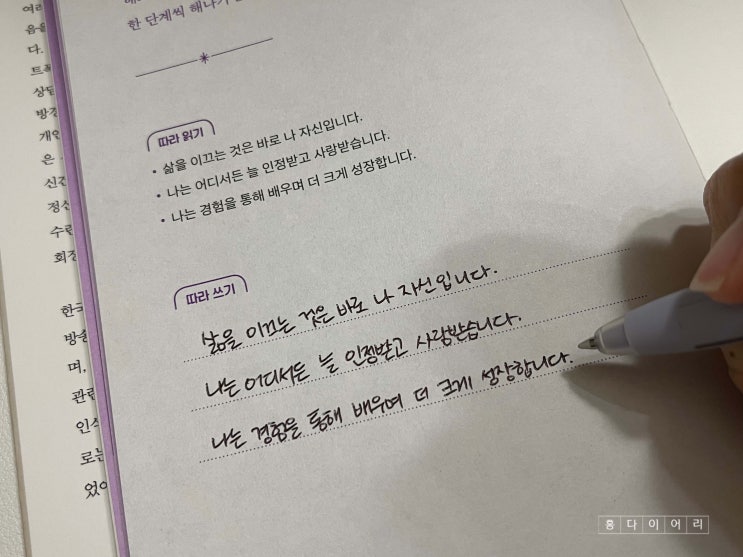 한 단계씩 해나가
따라 읽기
• 삶을 이끄는 것은 바로 나 자신입니다.
• 나는 어디서든 늘 인정받고 사랑받습니다.
• 나는 경험을 통해 배우며 더 크게 성장합니다.
따라 쓰기
삶을 이끄는 것은 바로 나 자신입니다.
나는 어디서든 늘 인정받고 사랑받습니다.
나는 경험을 통해 배우며 더 크게 성장합니다.
여러
음을
다.
상담
방경
개인
은
신간
정신
수련
회장
한국
방송
며,
관련
인식
로는
었어
홍다이어리